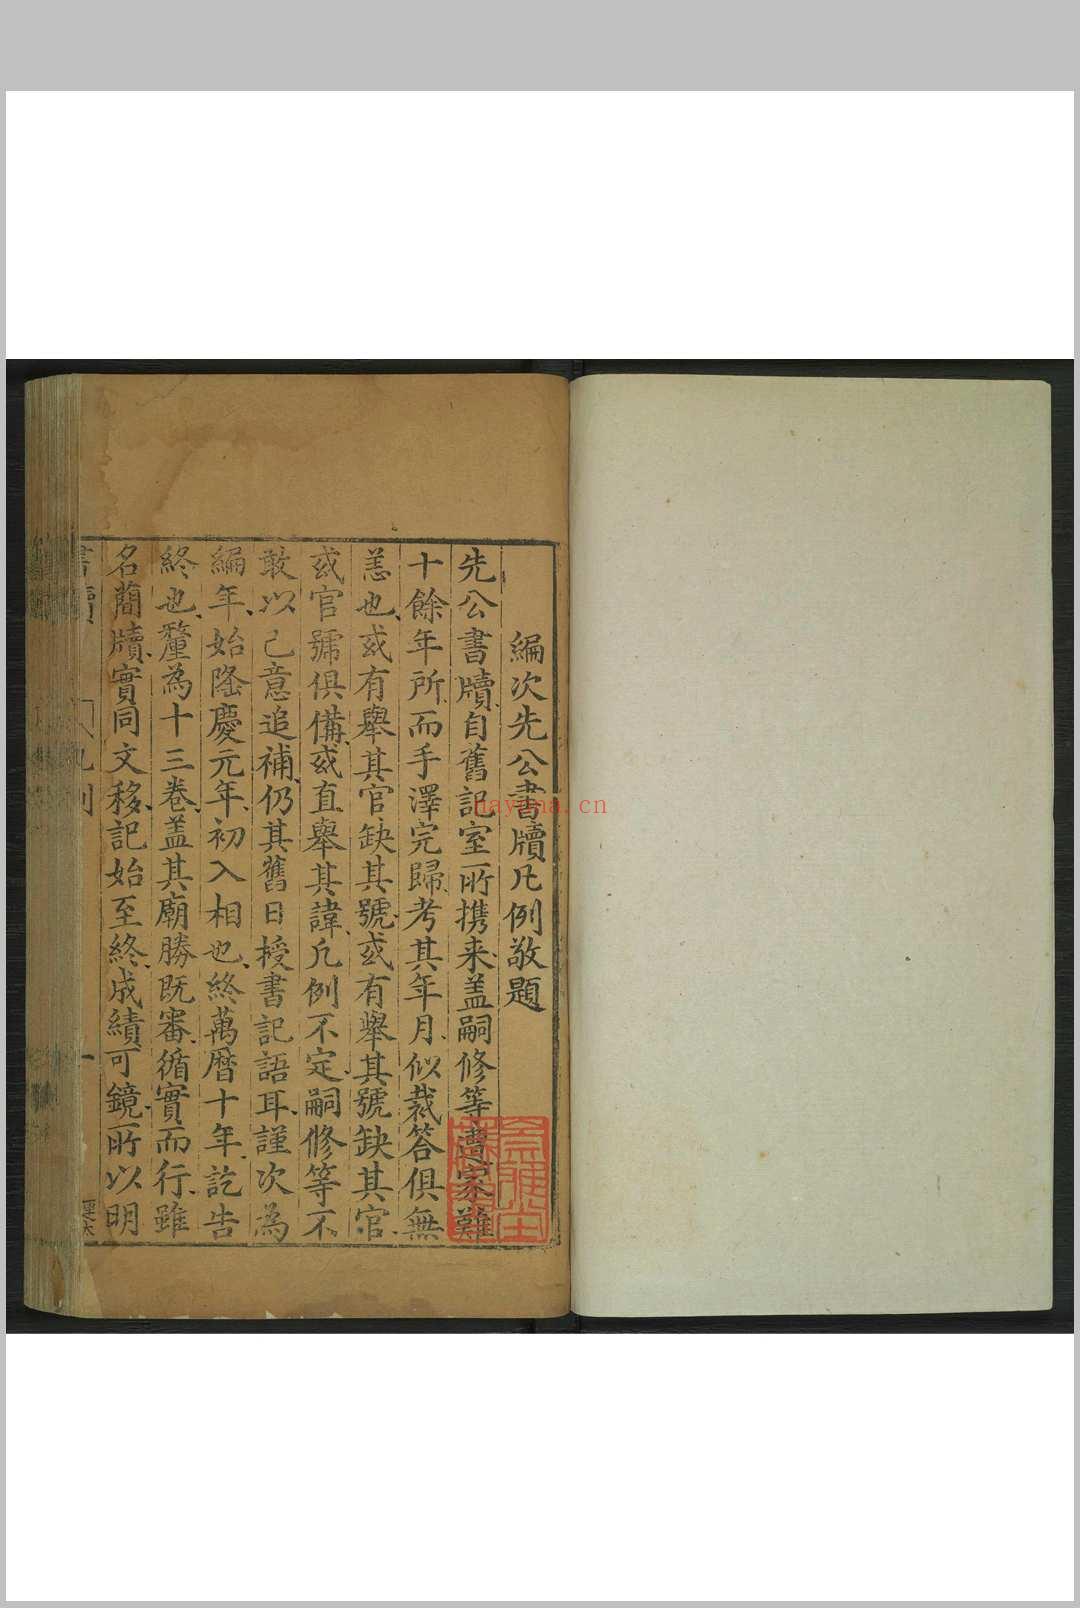 編次先公書牘凡例敬題
先公書牘自舊記室所携来盖嗣修等遭家難
十餘年所而手澤完歸考其年月似裁答俱無
恙也或有舉其官缺其號或有舉其號缺其官
或官號俱備或直舉其諱凡例不定嗣修等不
敢以己意追補仍其舊日授書記語耳謹次為
編年始隆慶元年初入相也終萬曆十年訖告
終也釐為十三卷盖其廟勝既審循實而行雖
名蕳牘實同文移記始至終成績可鏡所以明
hayona.cn